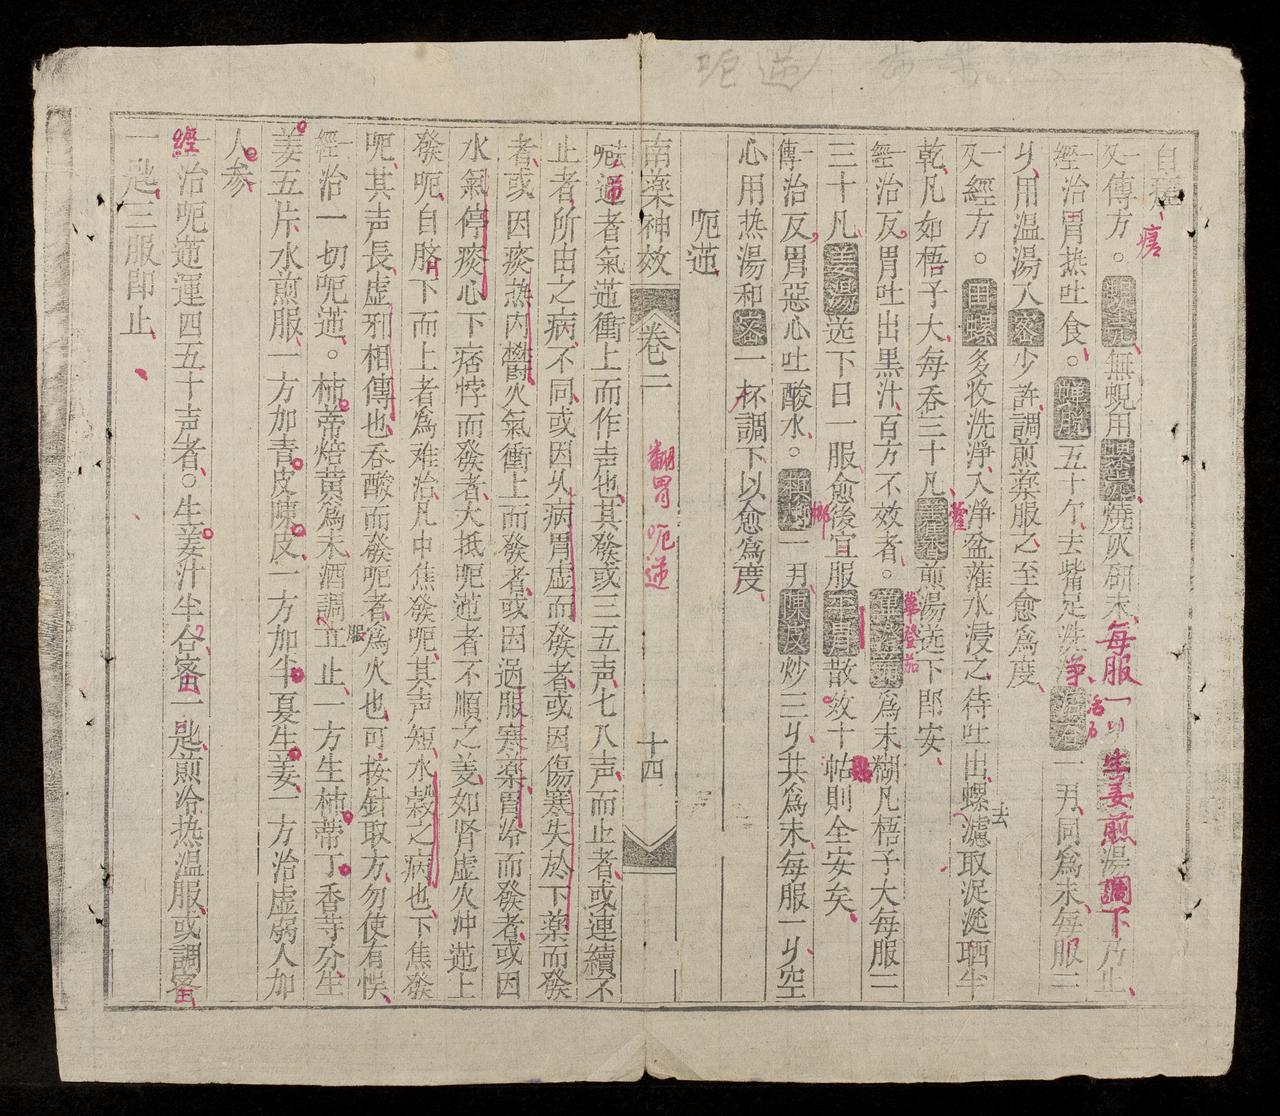 呃逆
自瘥
瘥
又一傳方。蜆壳無蜆用螺壳燒灰研末每服一𠃔生姜煎湯調下乃止
一經治胃热吐食。蟬脱五十个去觜足洗净滑石一両同為末每服二
滑石
𠃔用温湯入密少許調煎薬服之至愈為度
又一經方。田螺多收洗淨入淨盆蓷水浸之待吐出螺濾取泥涎晒半
去
乾凡如梧子大每吞三十凡藿香煎湯送下即安
藿
一經治反胃吐出黒汁百方不效者。蓽澄茄為末糊凡梧子大每服二
蓽登茄
三十凡姜湯送下日一服愈後宜服平胃散效十帖則全安矣
貼
一傳治反胃惡心吐酸水。檳榔一両陳皮炒三𠃔共為末每服一𠃔空
榔
心用热湯和密一杯調下以愈為度
呃逆
南薬神效 卷二 十四
翻胃 呃逆
呃逆者氣逆衝上而作声也其發或三五声七八声而止者或連續不
止者所由之病不同或因久病胃虚而發者或因傷寒失於下薬而發
者或因痰热内欝火氣衝上而發者或因過服寒薬胃冷而發者或因
水氣停痰心下痞悖而發者大抵呃逆者不順之義如肾虚火冲逆上
發呃自脐下而上者為难治凡中焦發呃其声短水穀之病也下焦發
呃其声長虚邪相傳也吞酸而發呃者為火也可按針取方勿使有悮
一經治一切呃逆。柿蒂焙黄為末酒調立止一方生柿蒂丁香等分生
服
姜五片水煎服一方加青皮陳皮一方加半夏生姜一方治虚弱人加
人参
一經治呃逆運四五十声者。生姜汁半合密一匙煎冷热温服或調密
一匙三服即止